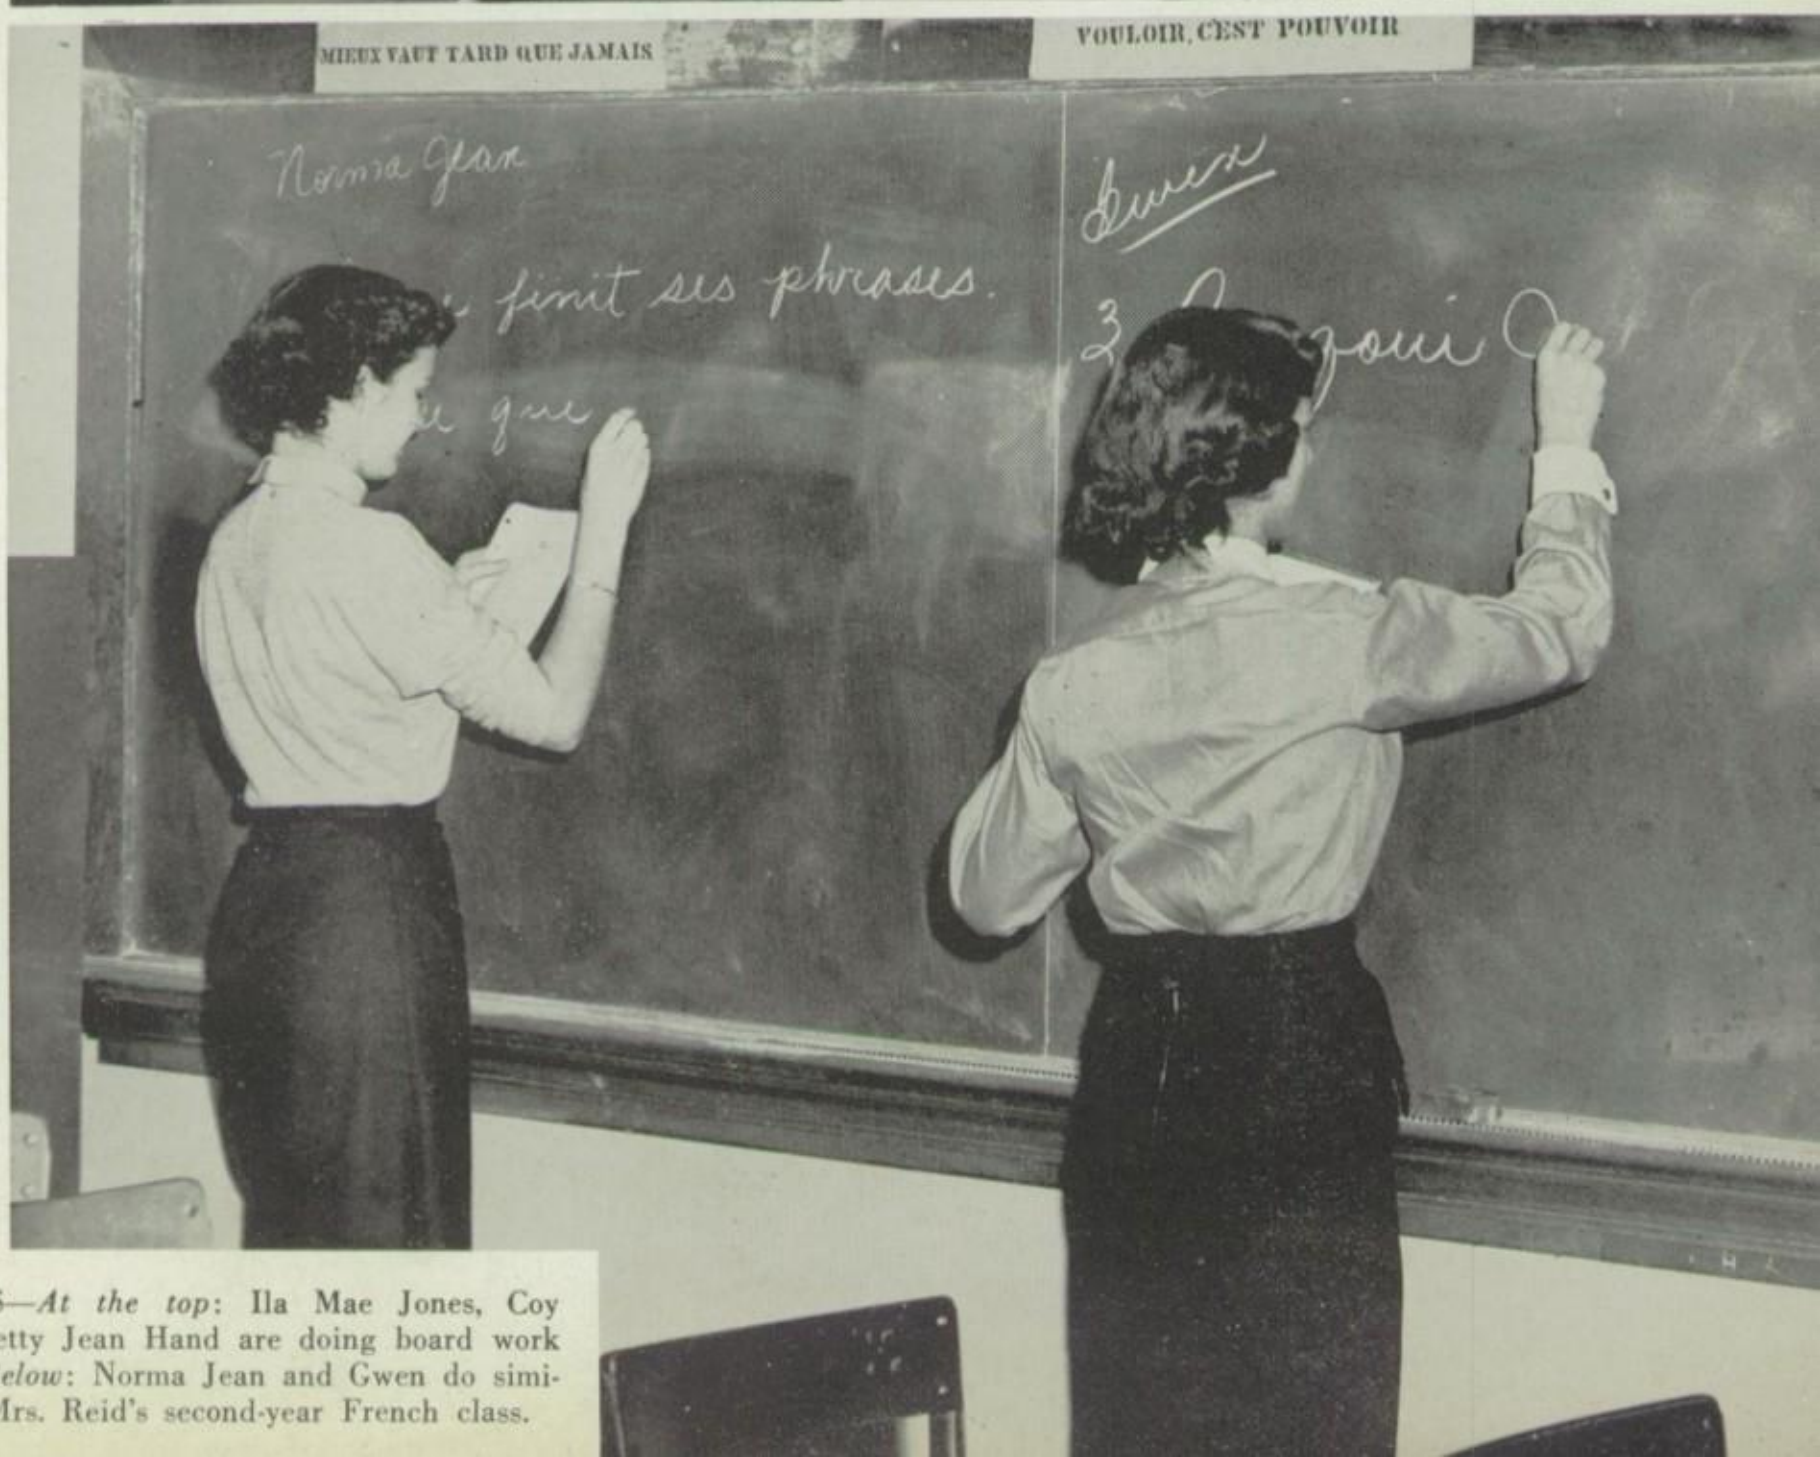 MIEUX VAUT TARD QUE JAMAIS
VOULOIR, C'EST POUVOIR
Norma Jean
finit ses phrases.
que
Gwen
3
—At the top: Ila Mae Jones, Coy
etty Jean Hand are doing board work
elow: Norma Jean and Gwen do simi-
Mrs. Reid's second-year French class.